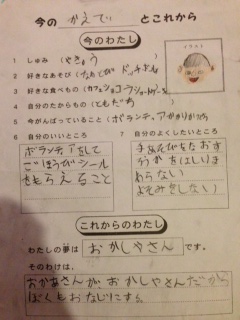 今の かえで とこれから
今のわたし
イラスト
1 しゅみ (やきょう)
2 好きなあそび (なわとび ドッチボール)
3 好きな食べもの (
4 自分のたからもの (ともだち)
5 今がんばっていること (ボランティア
6 自分のいいところ
ボランチィアをして
ごほうびシール
をもらえること
7 自分のよくしたいところ
手あそびをなおす
ろうかをはしりま
わらない
よそみをしない
これからのわたし
わたしの夢は おかしやさん です。
そのわけは、
おかあさんが、おかしやさんだから
ぼくもおなじにする。